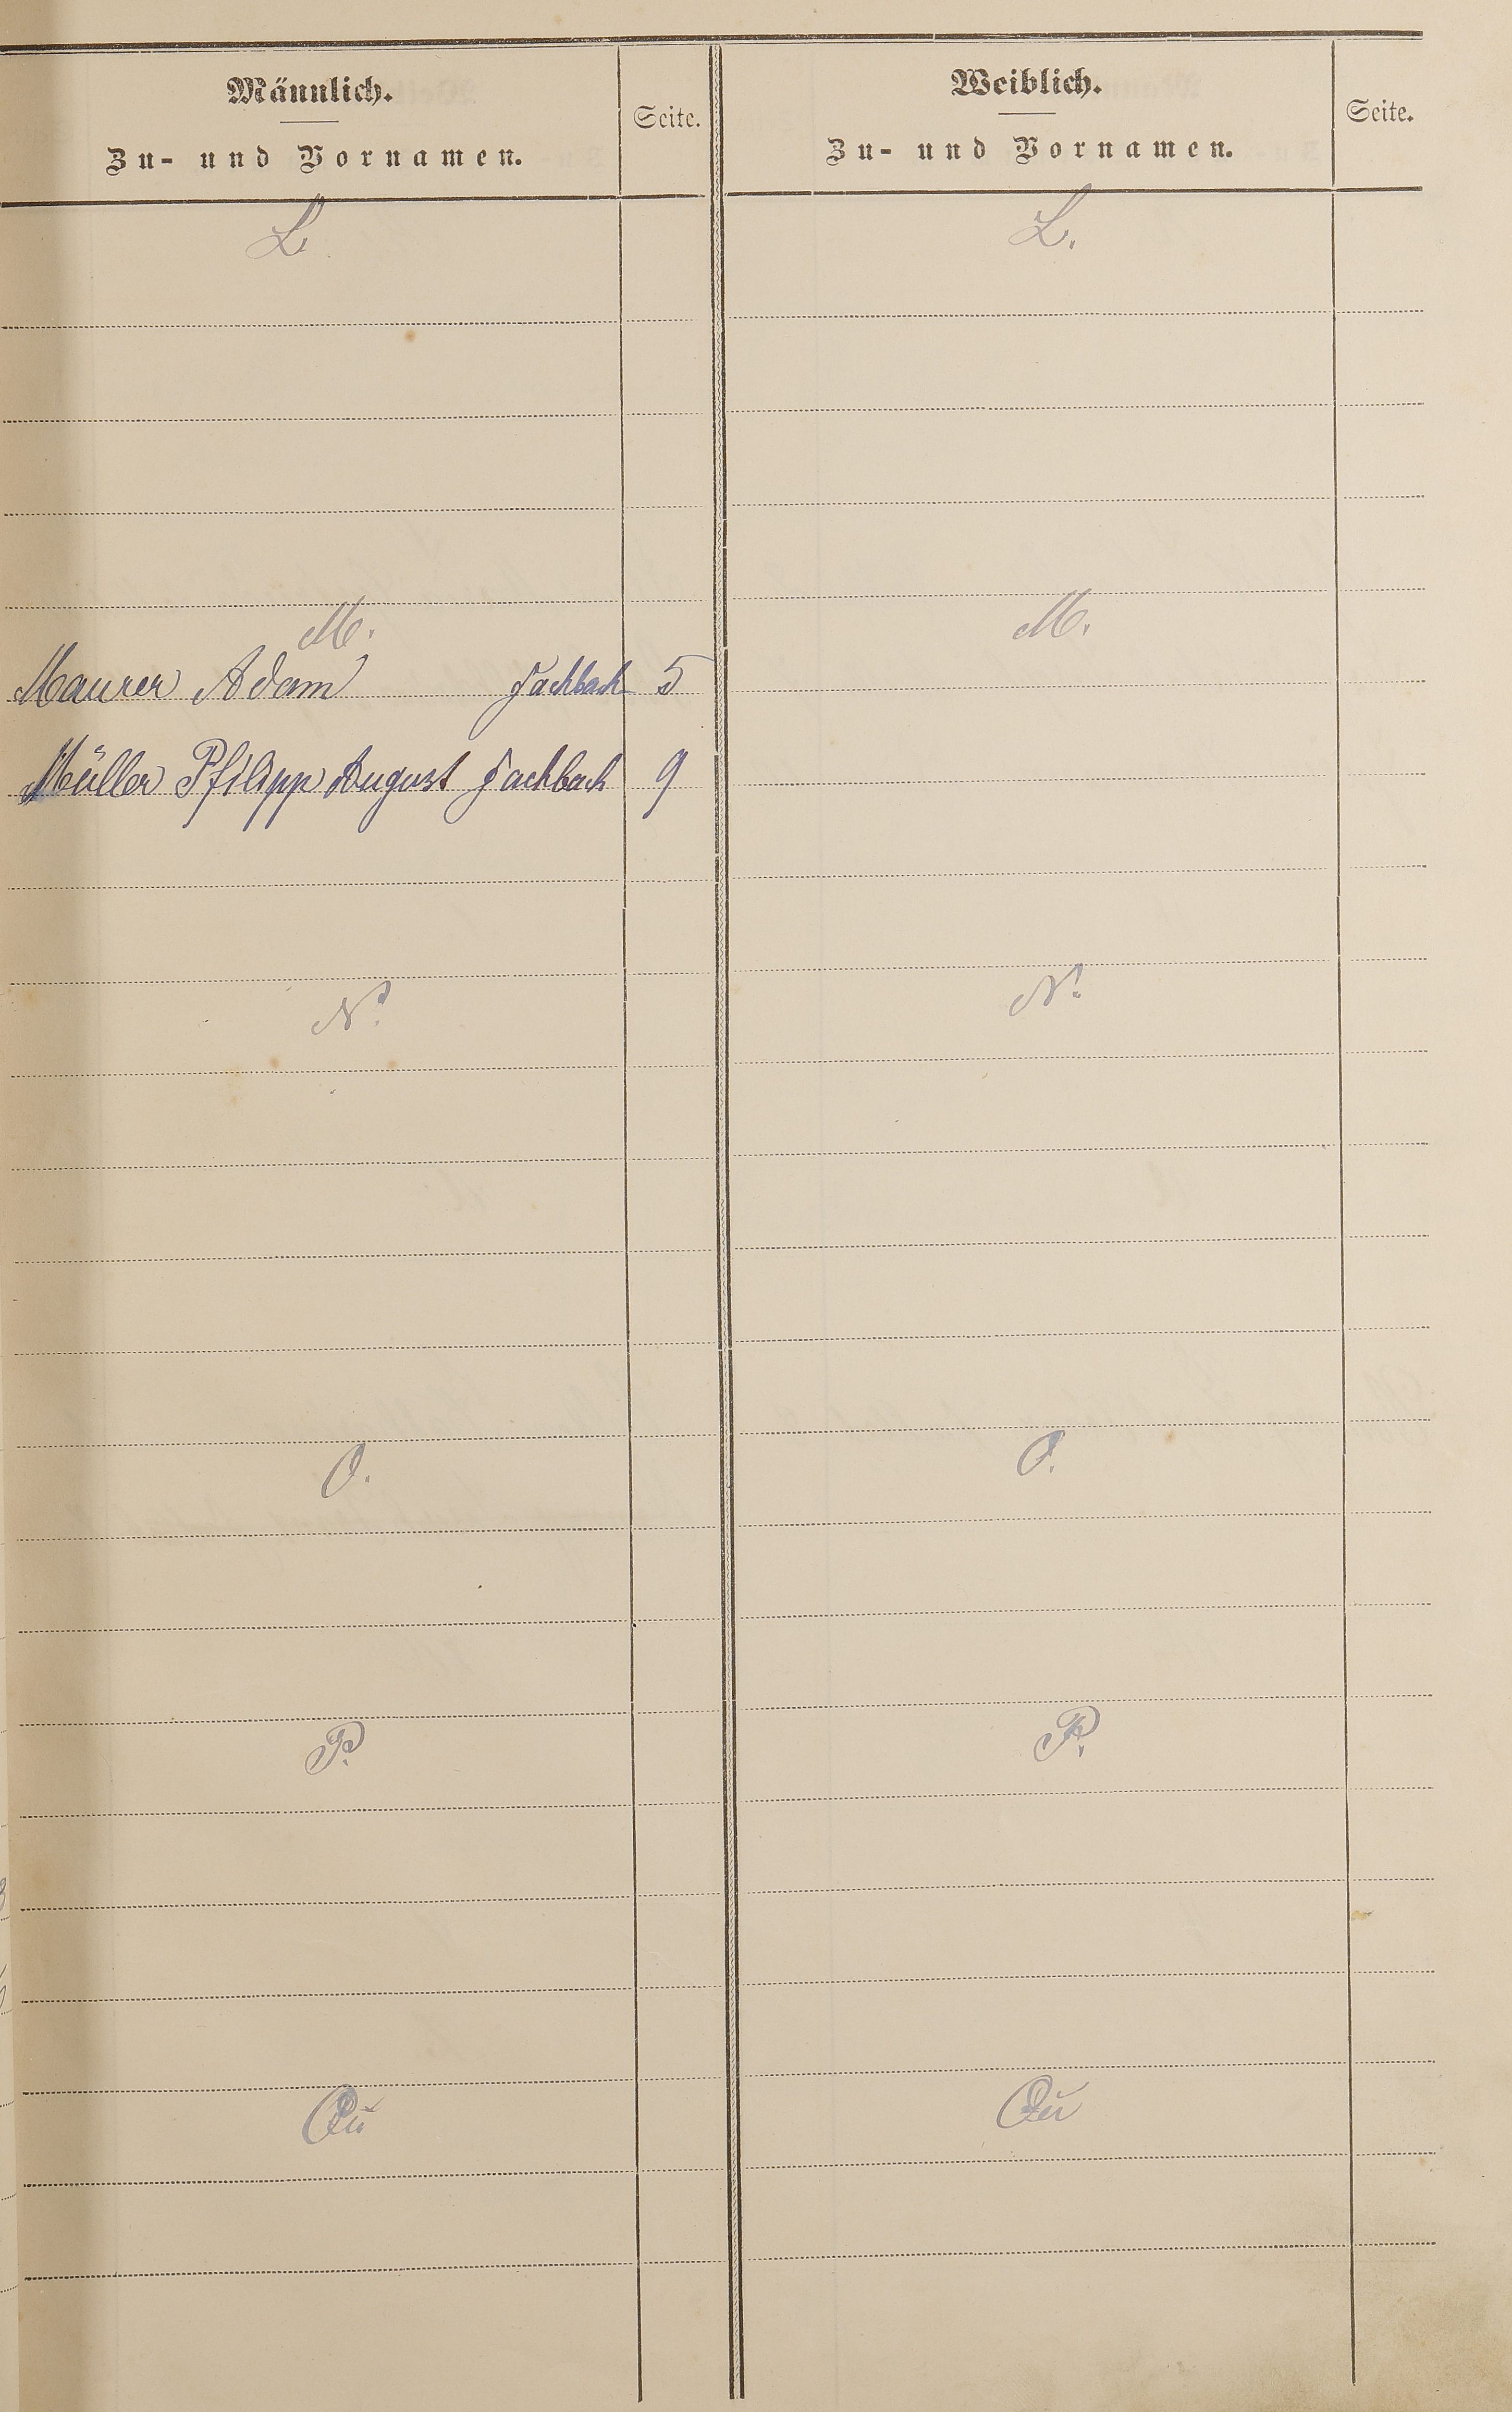 Männlich.
Zu- und Vornamen.
Seite.
Weiblich.
Zu- und Vornamen.
Seite.
L.
L.
M.
M.
Maurer Adam Fachbach 5
Müller Philipp August Fachbach 9
N.
N.
O.
O.
P.
P.
Qŭ
Qŭ